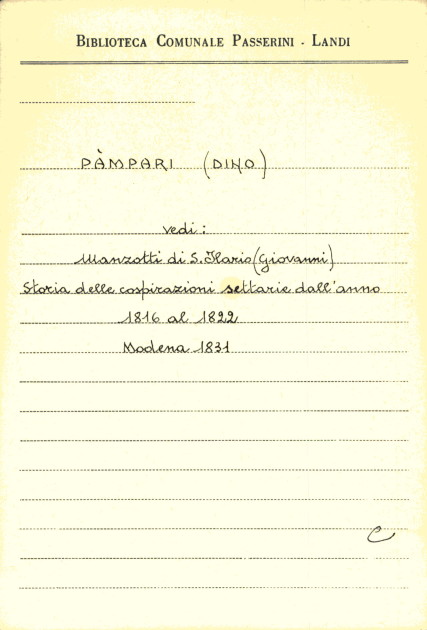 BIBLIOTECA COMUNALE PASSERINI - LANDI
PÀMPARI (DINO)
vedi:
Manzotti di S. Ilario (Giovanni)
Storia delle cospirazioni settarie dall'anno
1816 al 1822
Modena 1831
C